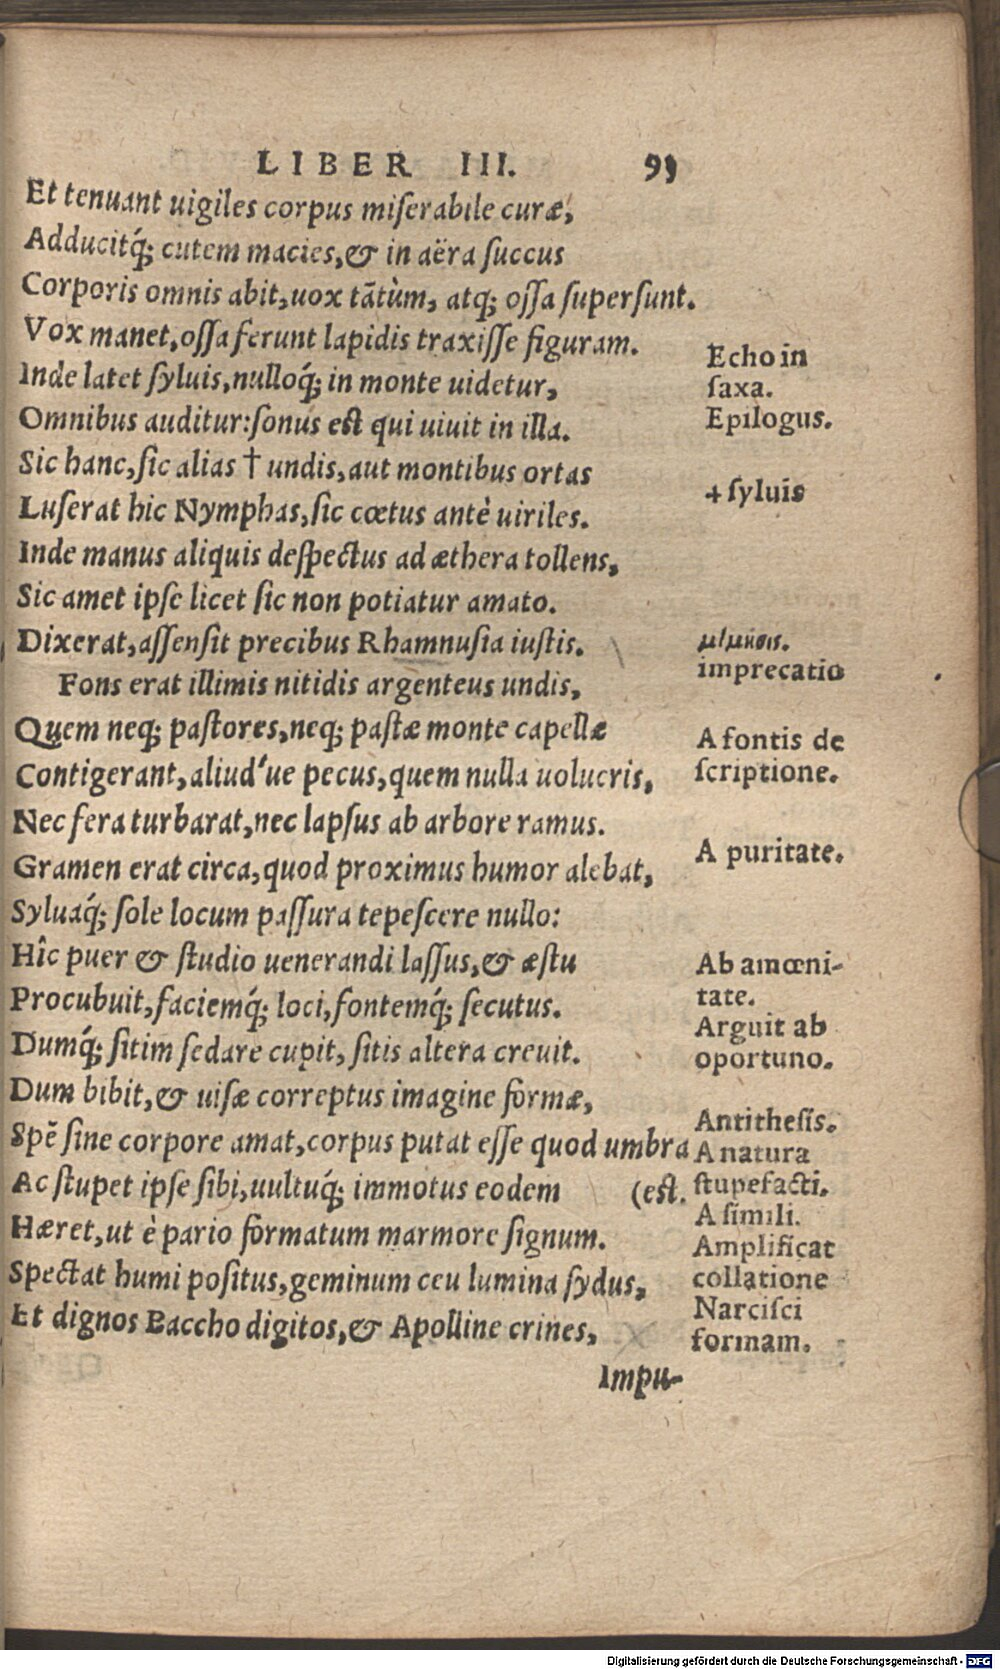 LIBER III. 91
Et tenuant uigiles corpus miſerabile curæ,
Adducitq́; cutem macies, & in aëra ſuccus
Corporis omnis abit, uox tãtùm, atq; oſſa ſuperſunt.
Vox manet, oſſa ferunt lapidis traxiſſe figuram.
Inde latet ſyluis, nulloq́; in monte uidetur,
Omnibus auditur: ſonus eſt qui uiuit in illa.
Sic hanc, ſic alias † undis, aut montibus ortas
Luſerat hic Nymphas, ſic cœtus antè uiriles.
Inde manus aliquis deſpectus ad æthera tollens,
Sic amet ipſe licet ſic non potiatur amato.
Dixerat, aſſenſit precibus Rhamnuſia iuſtis.
Fons erat illimis nitidis argenteus undis,
Quem neq; paſtores, neq; paſtæ monte capellæ
Contigerant, aliud'ue pecus, quem nulla uolucris,
Nec fera turbarat, nec lapſus ab arbore ramus.
Gramen erat circa, quod proximus humor alebat,
Syluaq́; ſole locum paſſura tepeſcere nullo:
Hîc puer & ſtudio uenerandi laſſus, & æſtu
Procubuit, faciemq́; loci, fontemq́; ſecutus.
Dumq́; ſitim ſedare cupit, ſitis altera creuit.
Dum bibit, & uiſæ correptus imagine formæ,
Spẽ ſine corpore amat, corpus putat eſſe quod umbra
Ac ſtupet ipſe ſibi, uultuq́; immotus eodem (eſt.
Hæret, ut è pario formatum marmore ſignum.
Spectat humi poſitus, geminum ceu lumina ſydus,
Et dignos Baccho digitos, & Apolline crines,
Impu-
Echo in
ſaxa.
Epilogus.
+ ſyluis
μίμησις.
imprecatio
A fontis de
ſcriptione.
A puritate.
Ab amœni-
tate.
Arguit ab
oportuno.
Antitheſis.
A natura
ſtupefacti.
A ſimili.
Amplificat
collatione
Narciſci
formam.
Digitalisierung gefördert durch die Deutsche Forschungsgemeinschaft - DFG